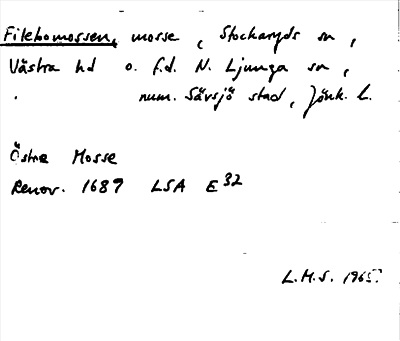 Filebomossen, mosse, Stockaryds sn,
Västra hd o. f.d. N. Ljunga sn,
num. Sävsjö stad, Jönk. l.
Östra Mosse
Renov. 1689 LSA E 32
L.M.S. 1965